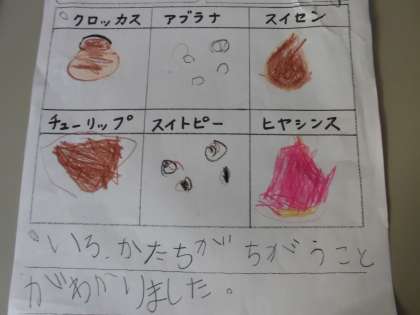 クロッカス アブラナ スイセン
チューリップ スイトピー ヒヤシンス
いろ、かたちが ちがうこと
がわかりました。